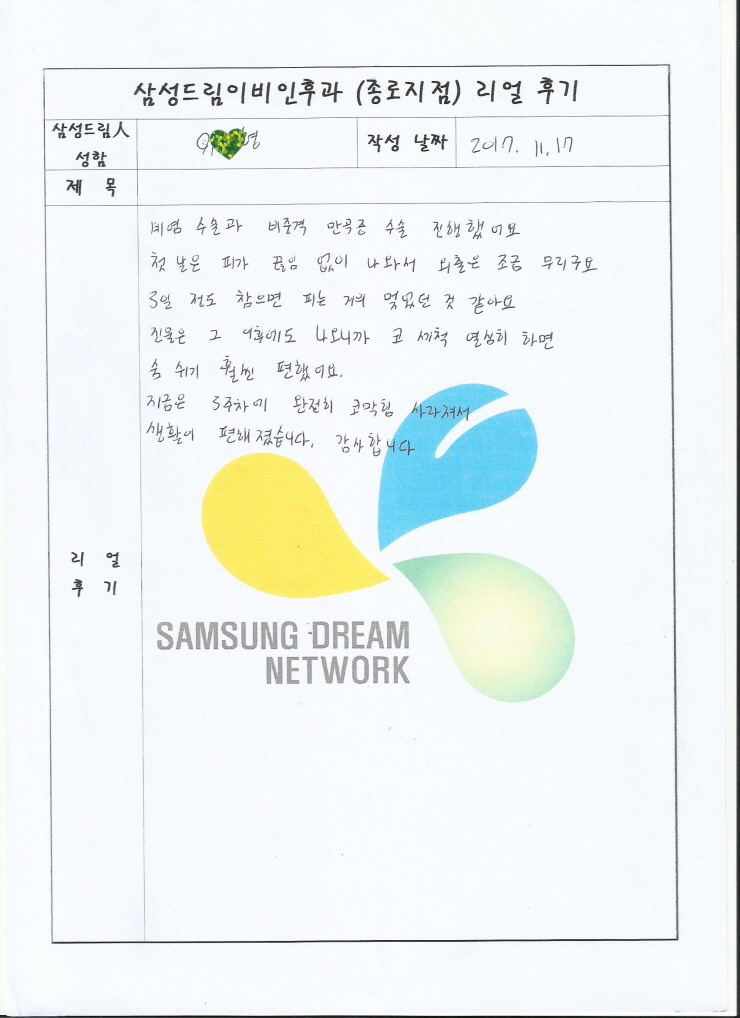 삼성드림이비인후과 (종로지점) 리얼 후기
삼성드림人 성함
영
작성 날짜
2017. 11. 17
제 목
비염 수술과 비중격 만곡증 수술 진행했어요
첫 날은 피가 끊임 없이 나와서 외출은 조금 무리구요
3일 정도 참으면 피는 거의 멎었던 것 같아요
진물은 그 이후에도 나오니까 코 세척 열심히 하면
숨 쉬기 훨씬 편했어요.
지금은 3주차에 완전히 코막힘 사라져서
생활이 편해졌습니다. 감사합니다
리 얼
후 기
SAMSUNG DREAM
NETWORK